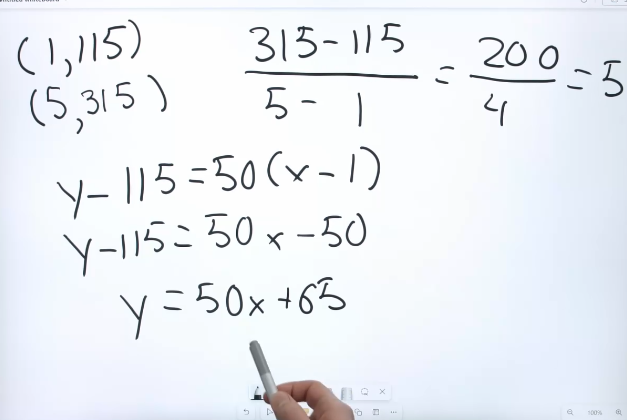 (1,115)
(5,315)
315-115 / 5-1 = 200 / 4 = 5
y-115=50(x-1)
y-115=50x-50
y=50x+65
100%